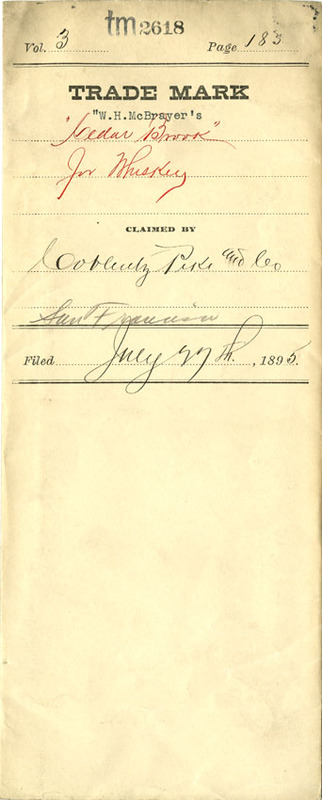 tm2618
Vol. 3 Page 183
TRADE MARK
"W.H.McBrayer's
"Cedar Brook"
for Whiskey
CLAIMED BY
Coblentz Pike and Co
San Francisco
Filed July 27th, 1895.